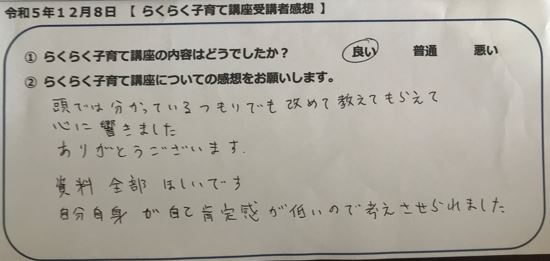 令和5年12月8日 【 らくらく子育て講座受講者感想 】
① らくらく子育て講座の内容はどうでしたか? 良い 普通 悪い
② らくらく子育て講座についての感想をお願いします。
頭では分かっているつもりでも改めて教えてもらえて
心に響きました
ありがとうございます.
資料 全部 ほしいです
自分自身が自己肯定感が低いので考えさせられました